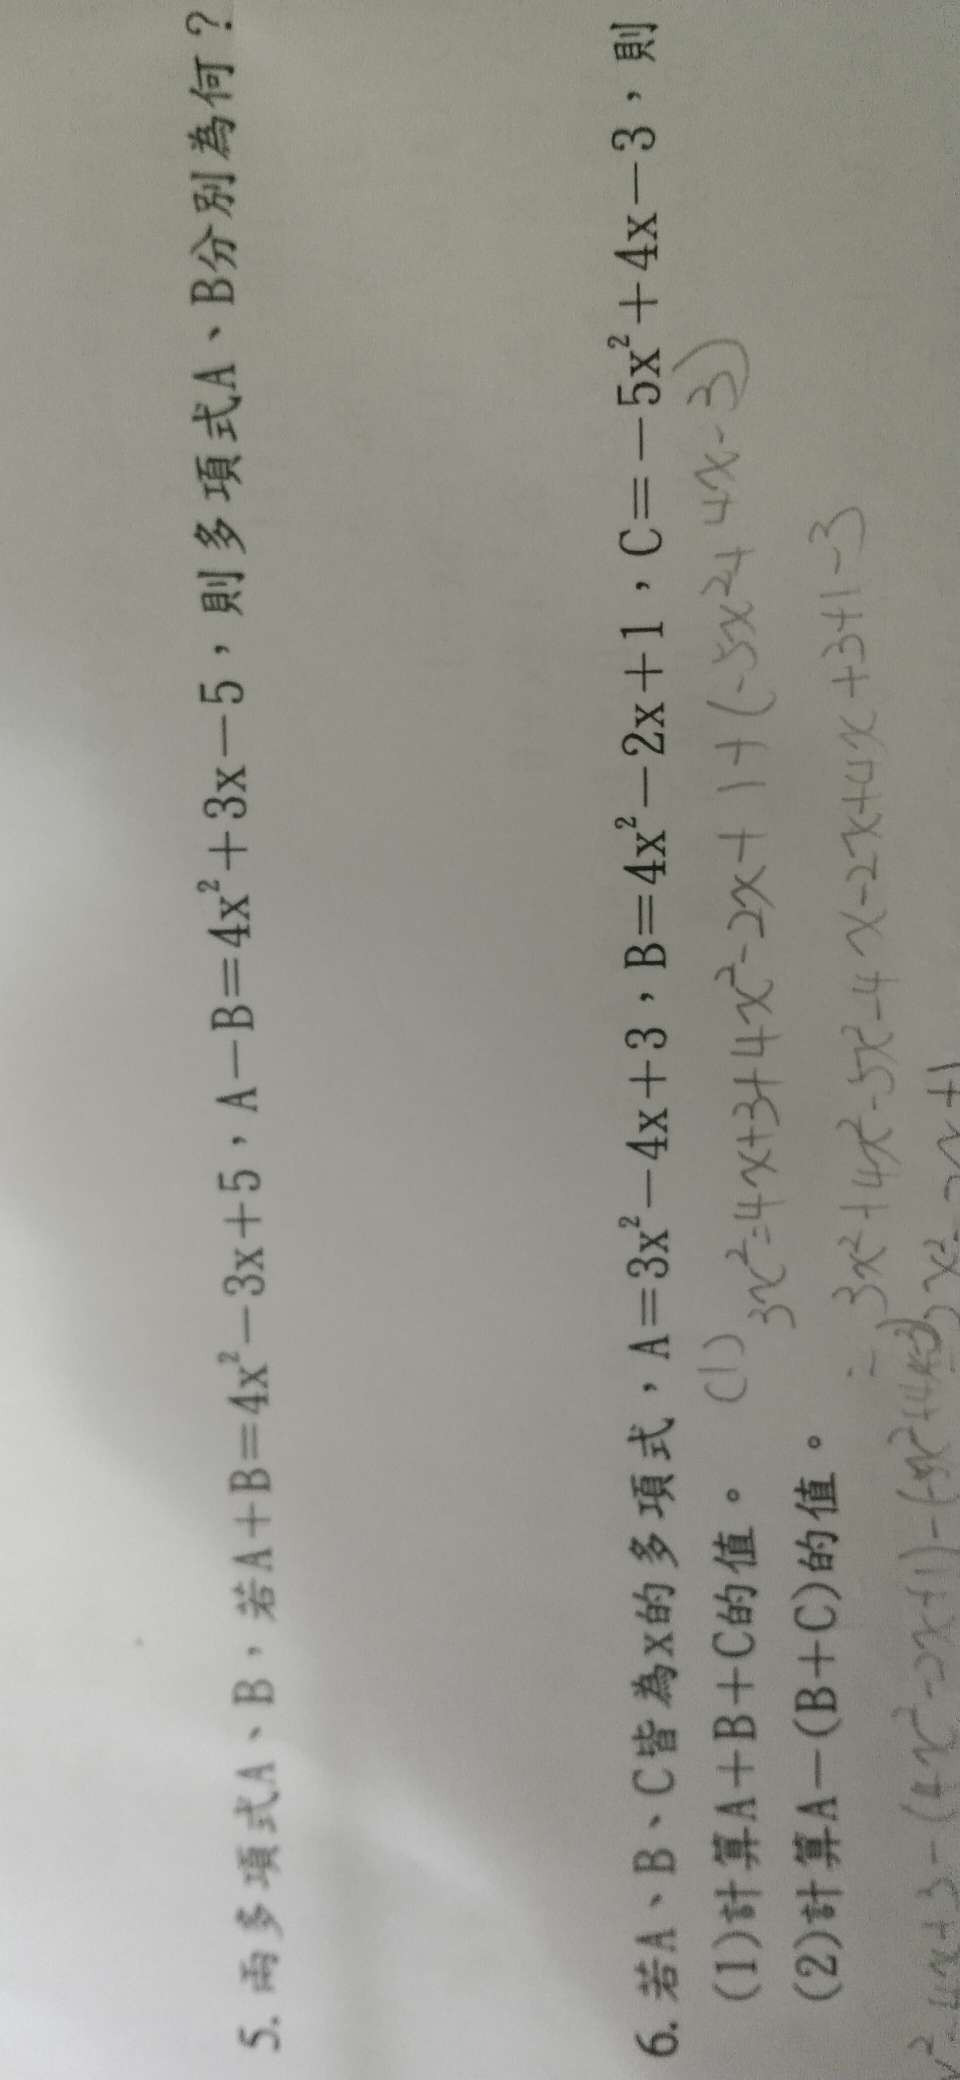 5. 兩多項式A、B，若A＋B＝4x²－3x＋5，A－B＝4x²＋3x－5，則多項式A、B分別為何？
6. 若A、B、C皆為x的多項式，A＝3x²－4x＋3，B＝4x²－2x＋1，C＝－5x²＋4x－3，則
(1)計算A＋B＋C的值。 (1) 3x²-4x+3+4x²-2x+1+(-5x²+4x-3)
(2)計算A－(B＋C)的值。 = 3x²+4x²-5x²-4x-2x+4x+3+1-3
-4x+3-(4x²-2x+1)-(-5x²+4x-3)